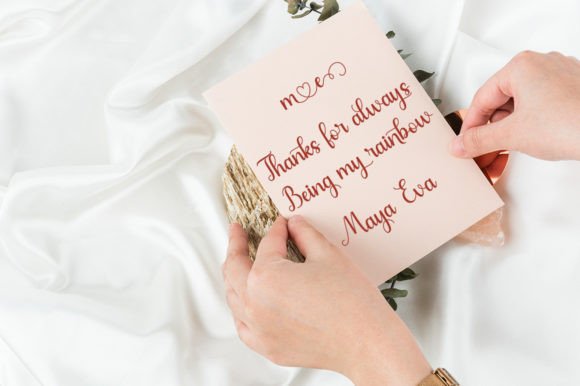 m♡e
Thanks for always
Being my rainbow
Maya Eva